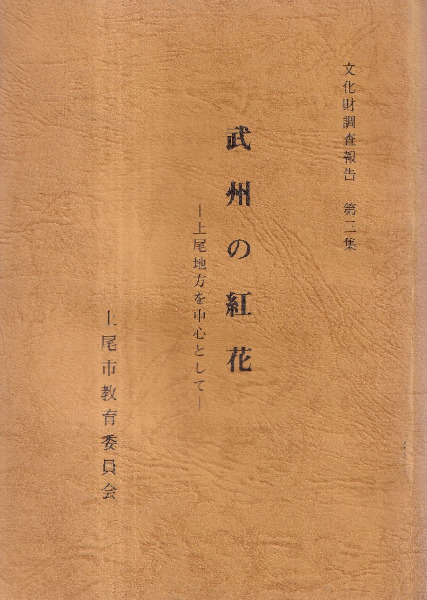 文化財調査報告 第二集
武州の紅花
―上尾地方を中心として―
上尾市教育委員会